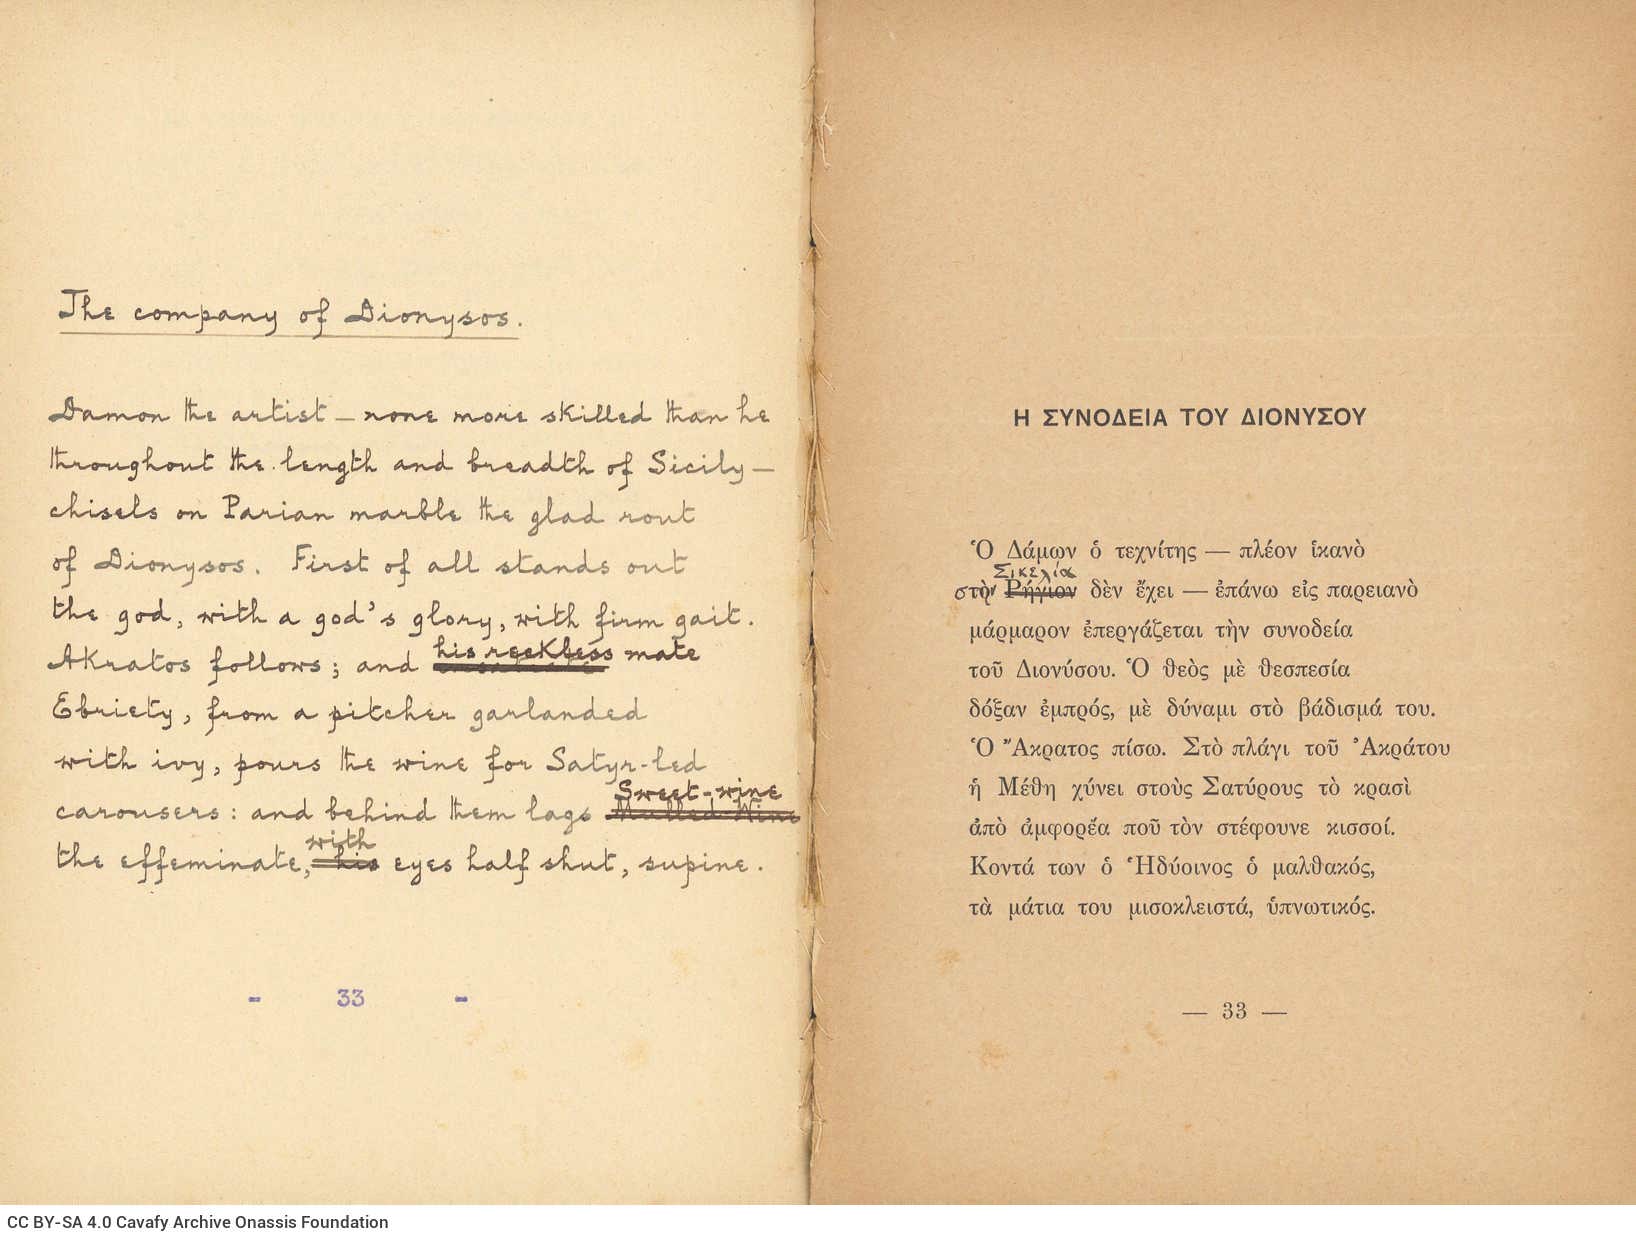 The company of Dionysos.
Damon the artist – none more skilled than he
throughout the length and breadth of Sicily –
chisels on Parian marble the glad rout
of Dionysos. First of all stands out
the god, with a god's glory, with firm gait.
Akratos follows; and his reckless mate
Ebriety, from a pitcher garlanded
with ivy, pours the wine for Satyr-led
Sweet-wine
carousers: and behind them lags Mulled-Wine
with
the effeminate, his eyes half shut, supine.
- 33 -
Η ΣΥΝΟΔΕΙΑ ΤΟΥ ΔΙΟΝΥΣΟΥ
Ὁ Δάμων ὁ τεχνίτης — πλέον ἱκανὸ
Σικελία
στὴν Ρήγιον δὲν ἔχει — ἐπάνω εἰς παρειανὸ
μάρμαρον ἐπεργάζεται τὴν συνοδεία
τοῦ Διονύσου. Ὁ θεὸς μὲ θεσπεσία
δόξαν ἐμπρός, μὲ δύναμι στὸ βάδισμά του.
Ὁ Ἄκρατος πίσω. Στὸ πλάγι τοῦ Ἀκράτου
ἡ Μέθη χύνει στοὺς Σατύρους τὸ κρασὶ
ἀπὸ ἀμφορέα ποῦ τὸν στέφουνε κισσοί.
Κοντά των ὁ Ἡδύοινος ὁ μαλθακός,
τὰ μάτια του μισοκλειστά, ὑπνωτικός.
— 33 —
CC BY-SA 4.0 Cavafy Archive Onassis Foundation